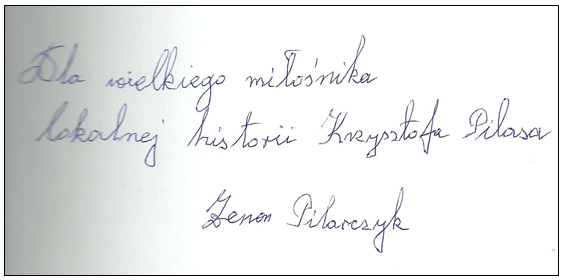 Dla wielkiego miłośnika
lokalnej historii Krzysztofa Pilasa
Zenon Pilarczyk